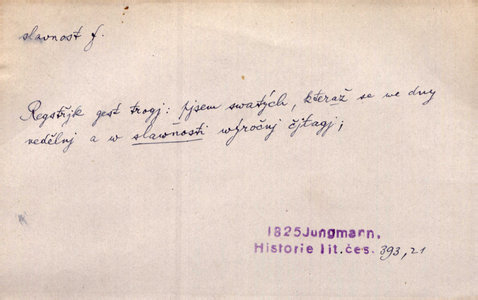 slavnost f.
Registřjk gest trogj: pjsem swatých, kteraž se we dny
nedělnj a w slawnosti wýročnj čjtagj;
1825 Jungmann,
Historie lit.čes. 393,21